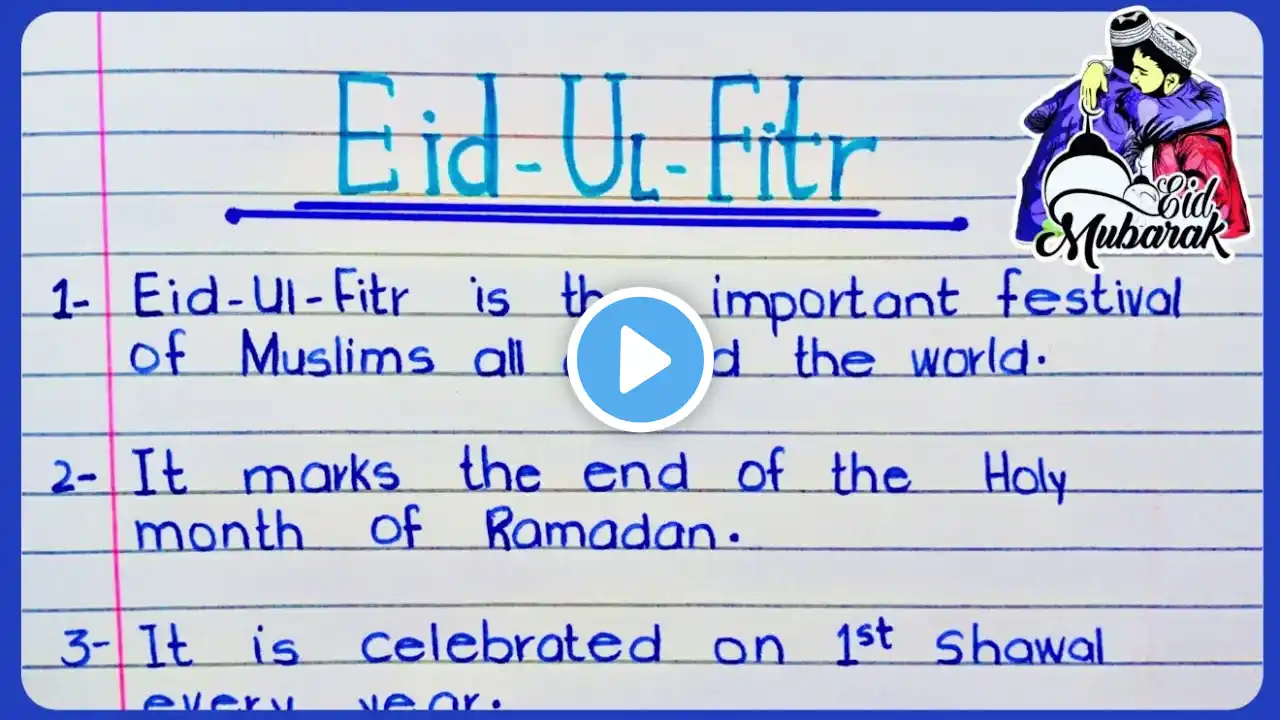 Eid-Ul-Fitr
Eid
Mubarak
1- Eid-Ul-Fitr is important festival
of Muslims all the world.
2- It marks the end of the Holy
month of Ramadan.
3- It is celebrated on 1st Shawal
every year.